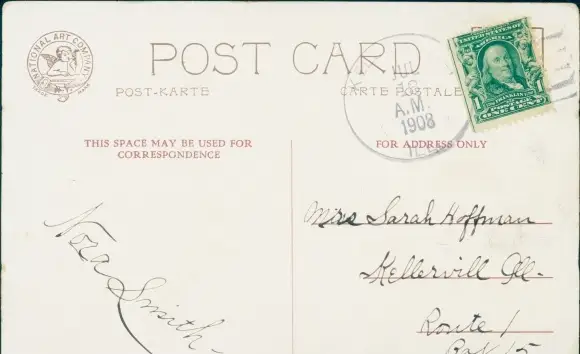 INTERNATIONAL ART COMPANY
POST CARD
POST-KARTE
CARTE POSTALE
UNITED STATES OF AMERICA
FRANKLIN
1 POSTAGE 1
ONE CENT
A.M.
1908
ILL
THIS SPACE MAY BE USED FOR
CORRESPONDENCE
FOR ADDRESS ONLY
Nora Smith
Mrs Sarah Hoffman
Kellervill Ill-
Route 1
Box 15